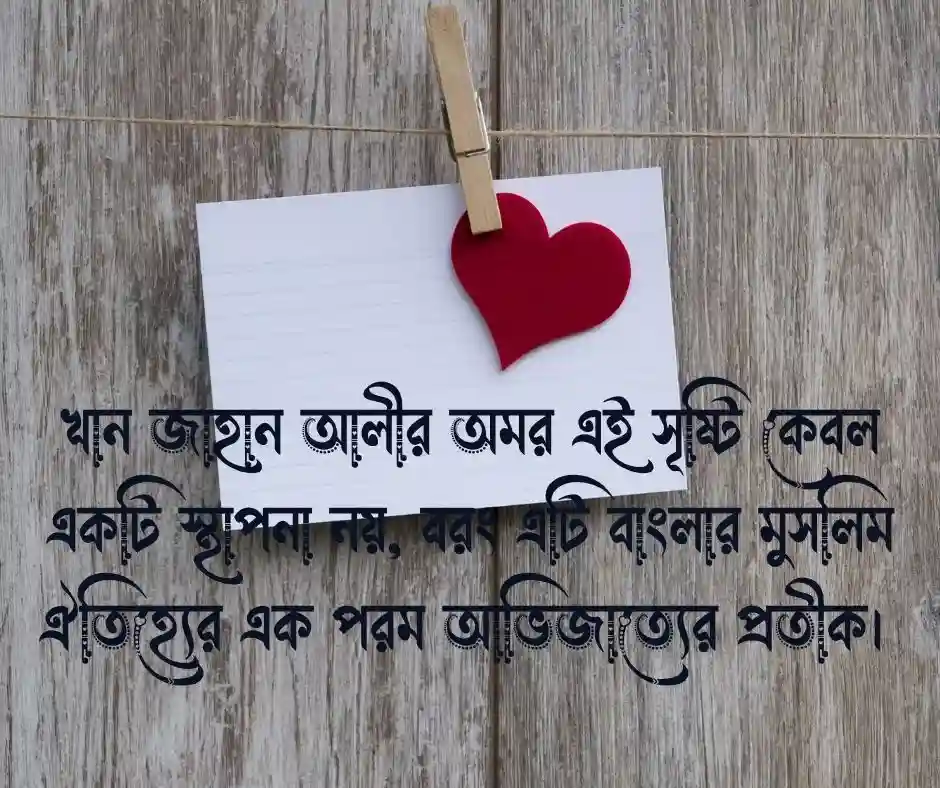 খান জাহান আলীর অমর এই সৃষ্টি কেবল
একটি স্থাপনা নয়, বরং এটি বাংলার মুসলিম
ঐতিহ্যের এক পরম আভিজাত্যের প্রতীক।